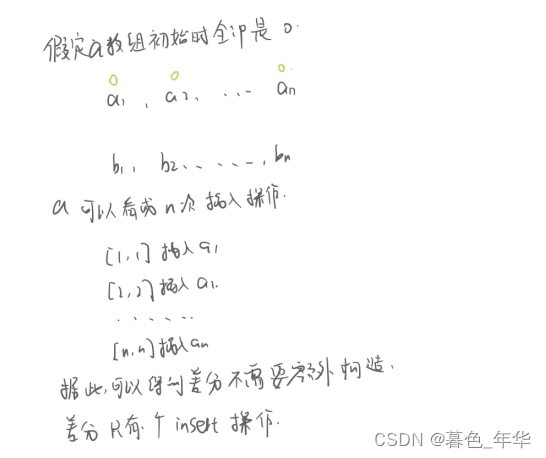 假定a数组初始时全部是 0.
0 0 0.
a1 , a2, ... an
b1, b2, ... , bn
a 可以看成 n 次 插入操作.
[1,1] 插入 a1
[2,2] 插入 a2.
. . . . . .
[n,n] 插入 an
据此,可以得到差分不需要额外构造.
差分只有一个 insert 操作.
CSDN @暮色_年华